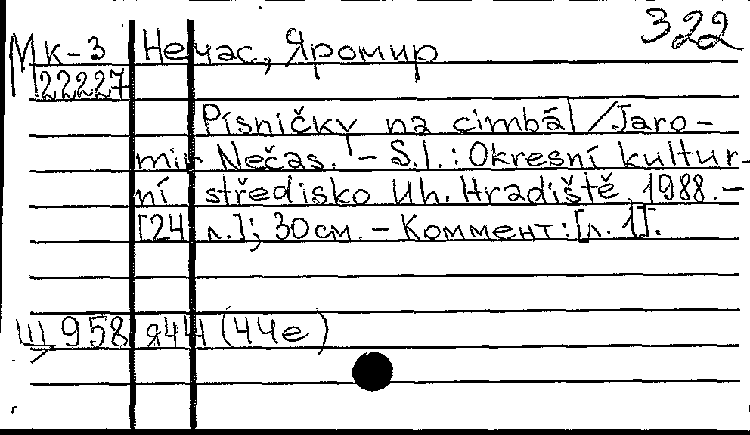 322
Мк-3 Нечас, Яромир
22227
Písničky na cimbál / Jaro-
mir Nečas. - S.l.: Okresní kultur-
ní středisko Uh. Hradiště, 1988.-
[24 л.]; 30см. - Коммент:[л. 1].
Щ958я44 (4Че)